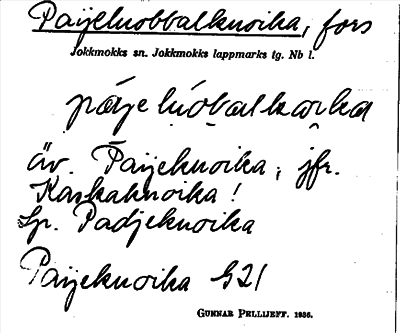 Paijeluobbalkuoika, fors
Jokkmokks sn. Jokkmokks lappmarks tg. Nb l.
páje lúobalkɑrka
äv. Paijekuoika, jfr.
Kaskakuoika!
Sp. Padjekuoika
Paijekuoika G21
GUNNAR PELLIJEFF. 1936.